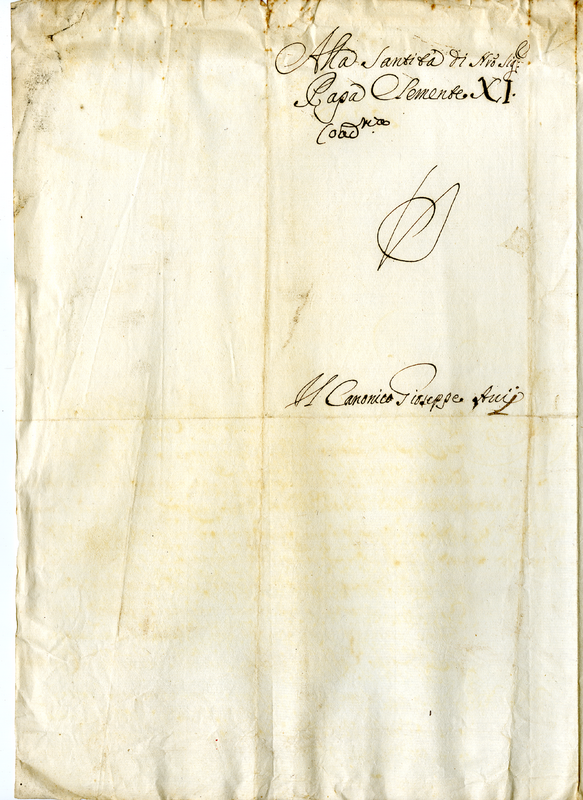 Alla Santità di Nro Sigre
Papa Clemente XI.
Il Canonico Gioseppe